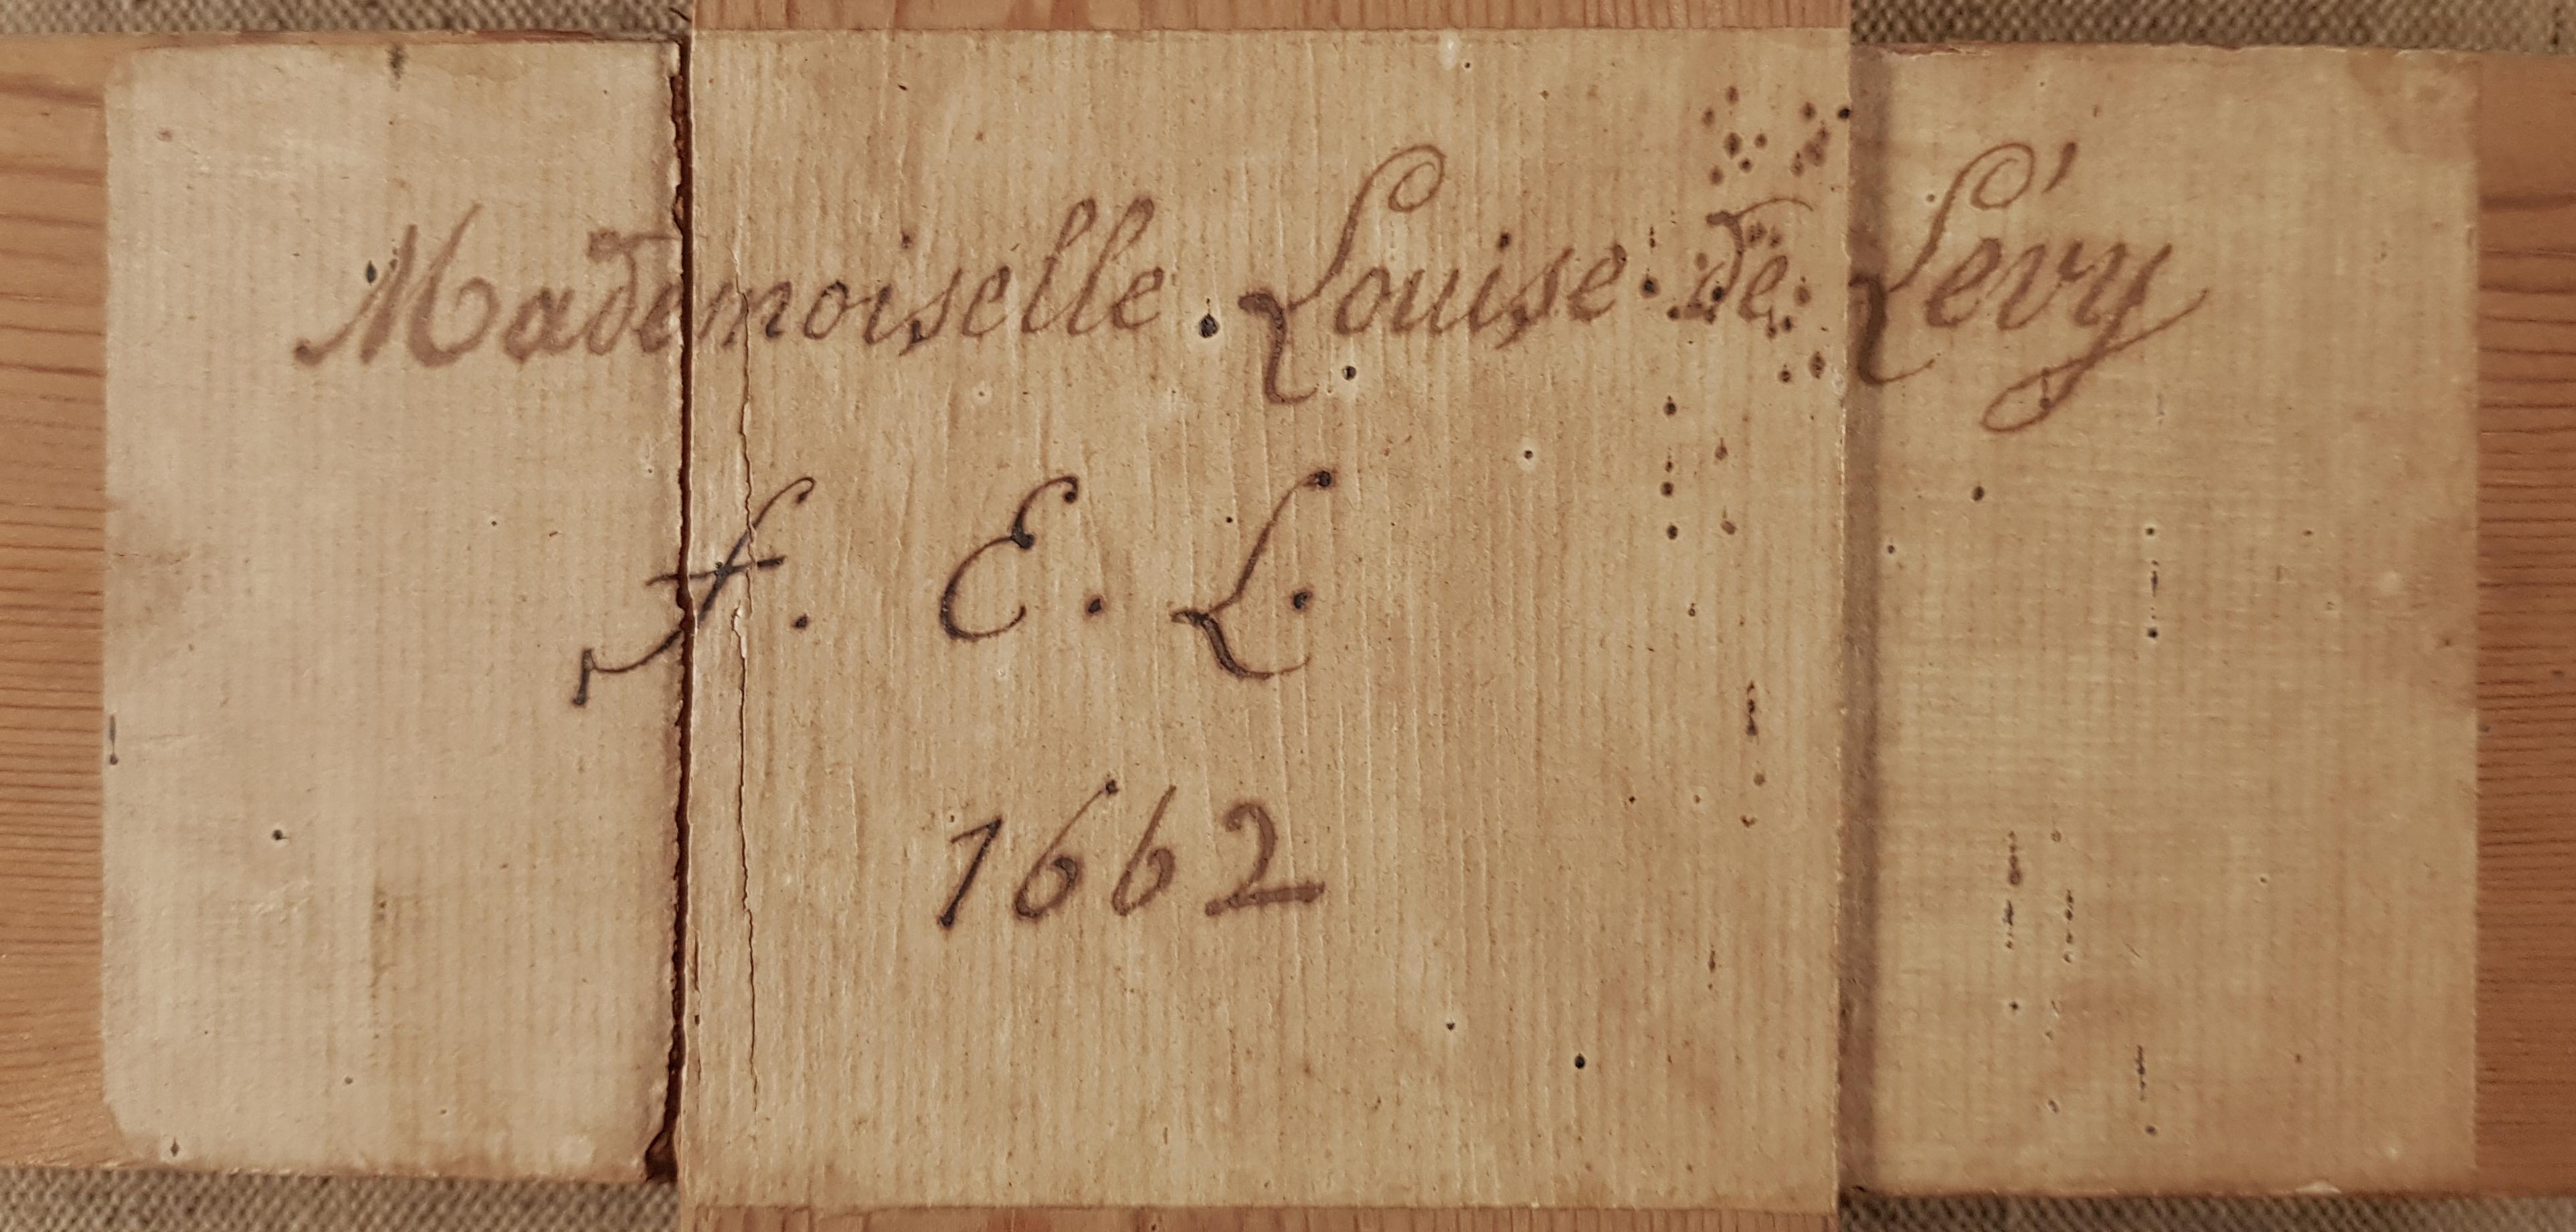 Mademoiselle Louise de Lévy
f. E. L.
1662